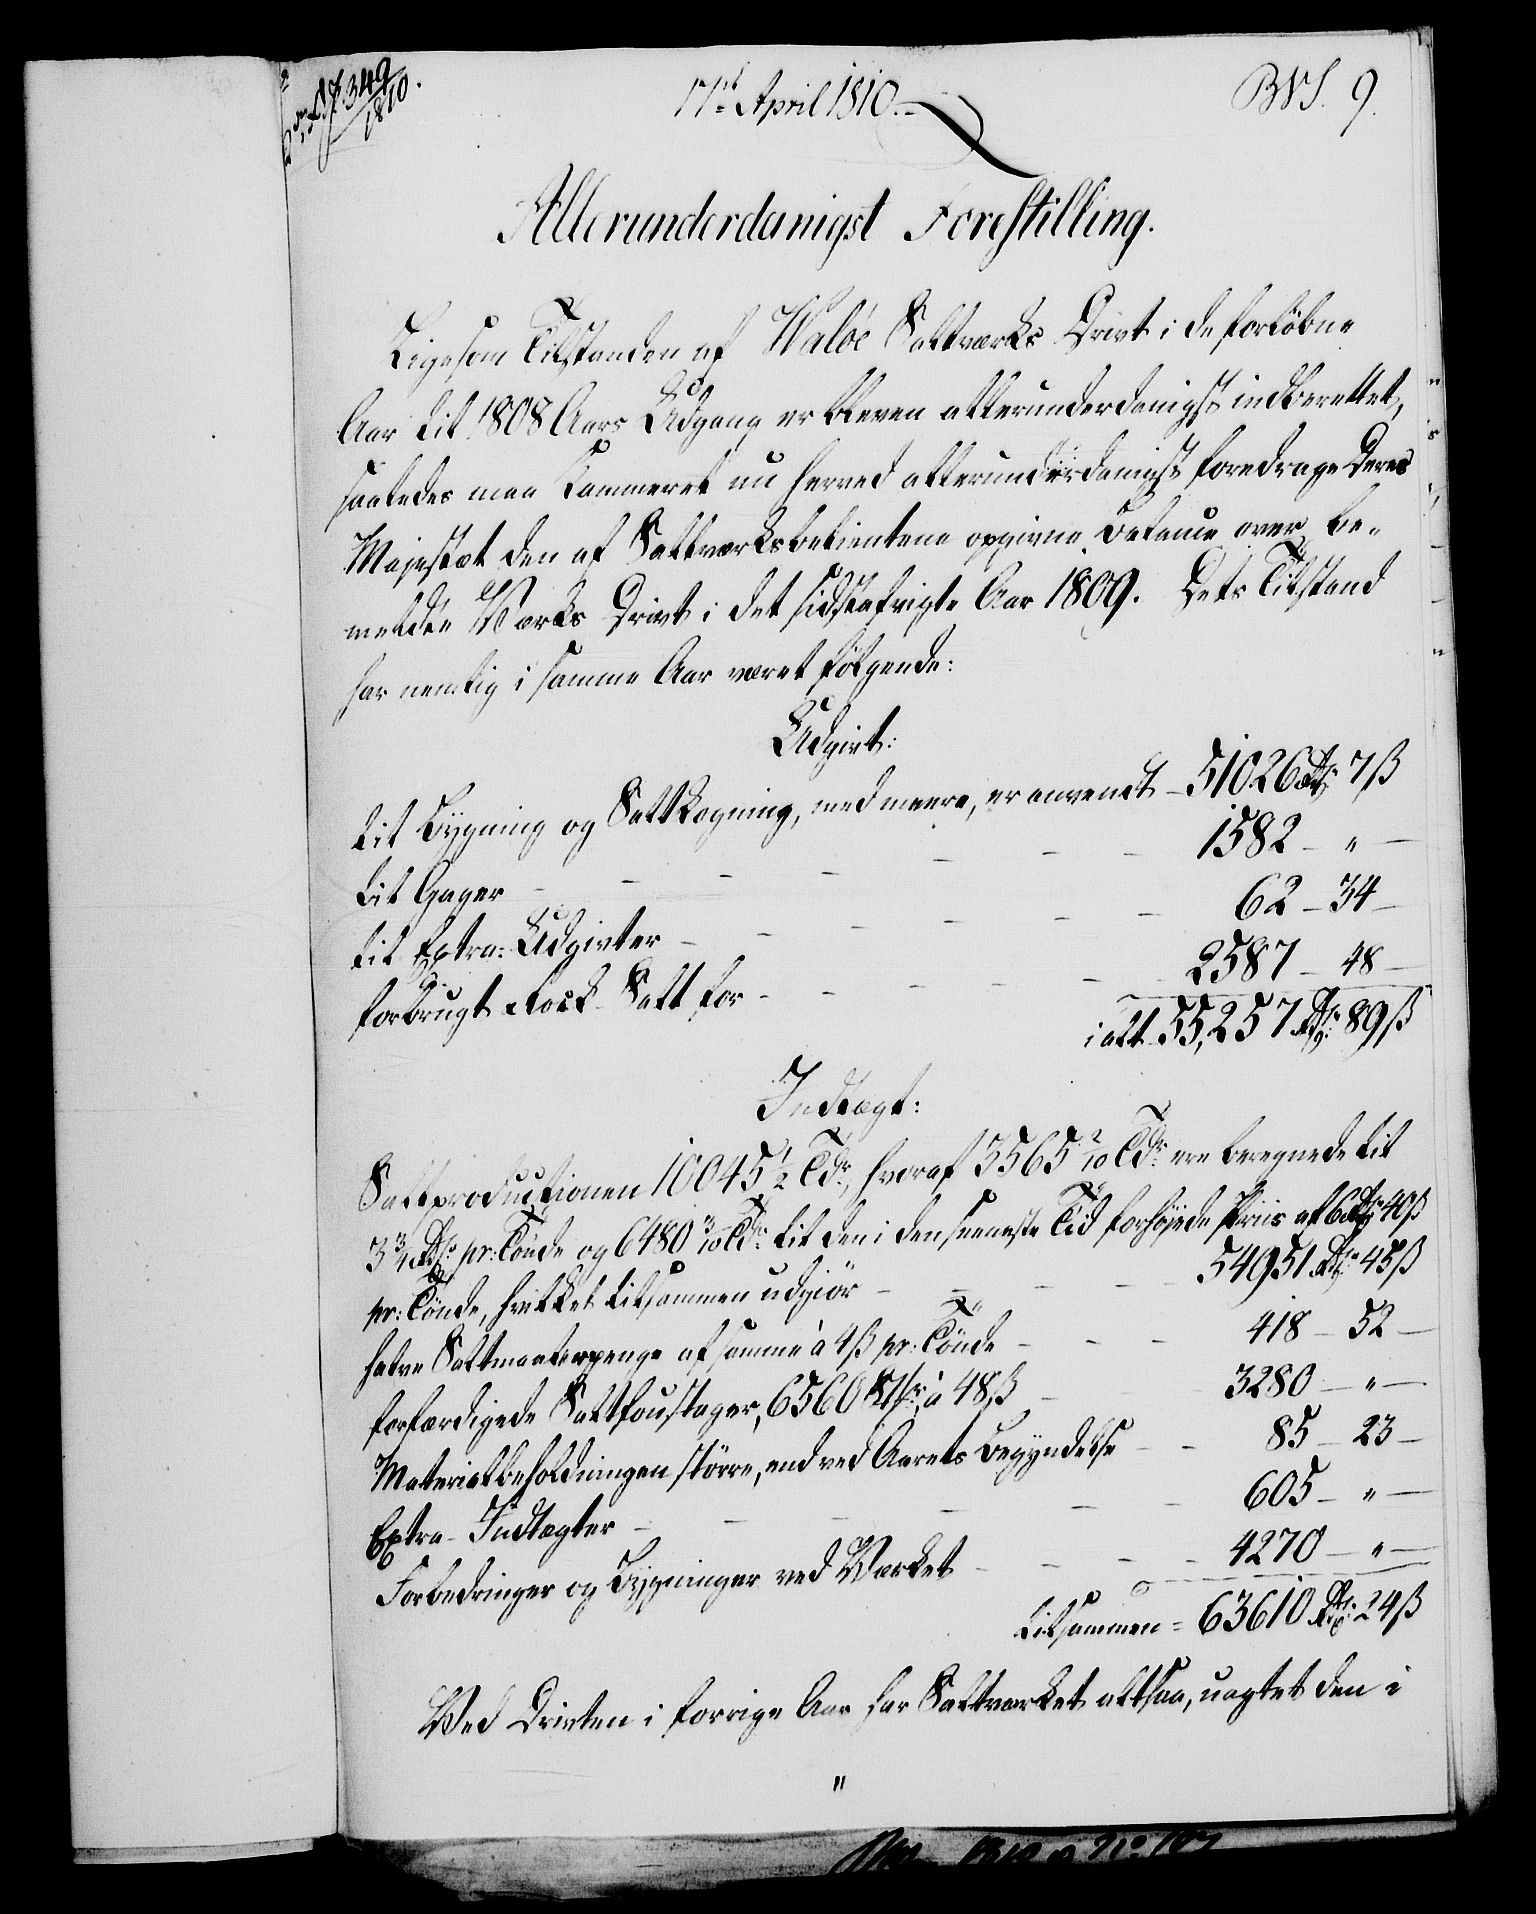 349
1810.
17de April 1810.
BVS. 9.
Allerunderdanigst Forestilling.
Ligesom Tilstanden af Waløe Saltværks Drivt i de forløbne
Aar til 1808 Aars Udgang er bleven allerunderdanigst indberettet,
saaledes maa Kammeret nu herved allerunderdanigst foredrage Deres
Majestæt den af Saltværksbetientene opgivne Balance over be-
meldte Værks Drivt i det sidstafvigte Aar 1809. Dets Tilstand
har nemlig i samme Aar været følgende:
Udgivt:
til Bygning og Saltkogning, med meere, er anvendt - 51026 Rdlr 7 ß
til Gager - - - - - - - 1582 - " -
til Extra-Udgivter - - - - - - 62 - 34 -
forbrugt Rock-Salt for - - - - - - 2587 - 48 -
i alt 55,257 Rdlr 89 ß
Indtægt:
Saltproductionen 10045 1/2 Tdr, hvoraf 3565 2/10 Tdr ere beregnede til
3 3/4 Rdlr pr: Tønde og 6480 3/10 Tdr til den i den seeneste Tid forhøjede Priis af 6 Rdlr 40 ß
pr: Tønde, hvilket tilsammen udgiør - - - - 54951 Rdlr 45 ß
halve Saltmaalerpenge af samme à 4 ß pr: Tønde - - - 418 - 52 -
forfærdigede Saltfoustager, 6560 Stkr à 48 ß - 3280 - " -
Materialbeholdningen større, end ved Aarets Begyndelse - - 85 - 23 -
Extra-Indtægter - - - - - - 605 - " -
Forbedringer og Bygninger ved Værket - - - - 4270 - " -
tilsammen = 63610 Rdlr 24 ß
Ved Drivten i forrige Aar har Saltværket altsaa, uagtet den i
"